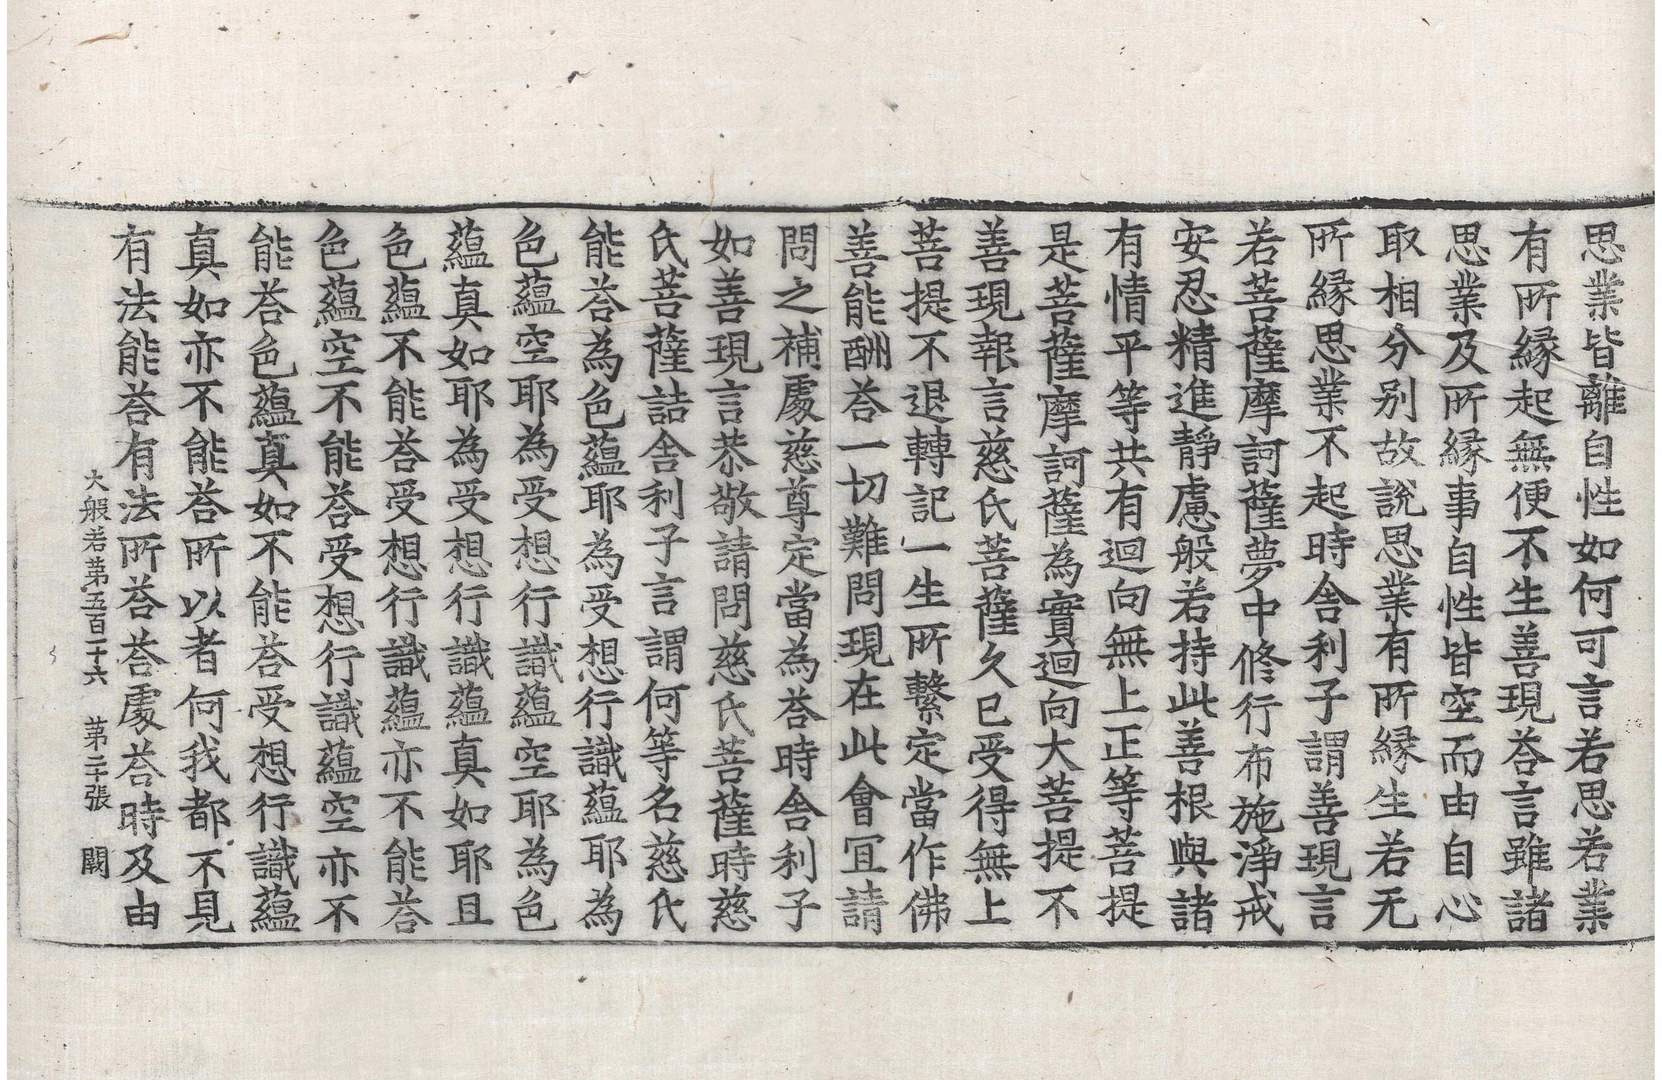 思業皆離自性如何可言若思若業
有所縁起無便不生善現荅言雖諸
思業及所縁事自性皆空而由自心
取相分别故說思業有所縁生若无
所縁思業不起時舎利子謂善現言
若菩薩摩訶薩夢中修行布施淨戒
安忍精進靜慮般若持此善根與諸
有情平等共有迴向無上正等菩提
是菩薩摩訶薩為實迴向大菩提不
善現報言慈氏菩薩久已受得無上
菩提不退轉記一生所繫定當作佛
善能酬荅一切難問現在此會冝請
問之補處慈尊定當為荅時舎利子
如善現言恭敬請問慈氏菩薩時慈
氏菩薩詰舎利子言謂何等名慈氏
能荅為色蘊耶為受想行識蘊耶為
色蘊空耶為受想行識蘊空耶為色
蘊真如耶為受想行識蘊真如耶且
色蘊不能荅受想行識蘊亦不能荅
色蘊空不能荅受想行識蘊空亦不
能荅色蘊真如不能荅受想行識蘊
真如亦不能荅所以者何我都不見
有法能荅有法所荅荅處荅時及由
大般若第五百二十六　第二十張　闕